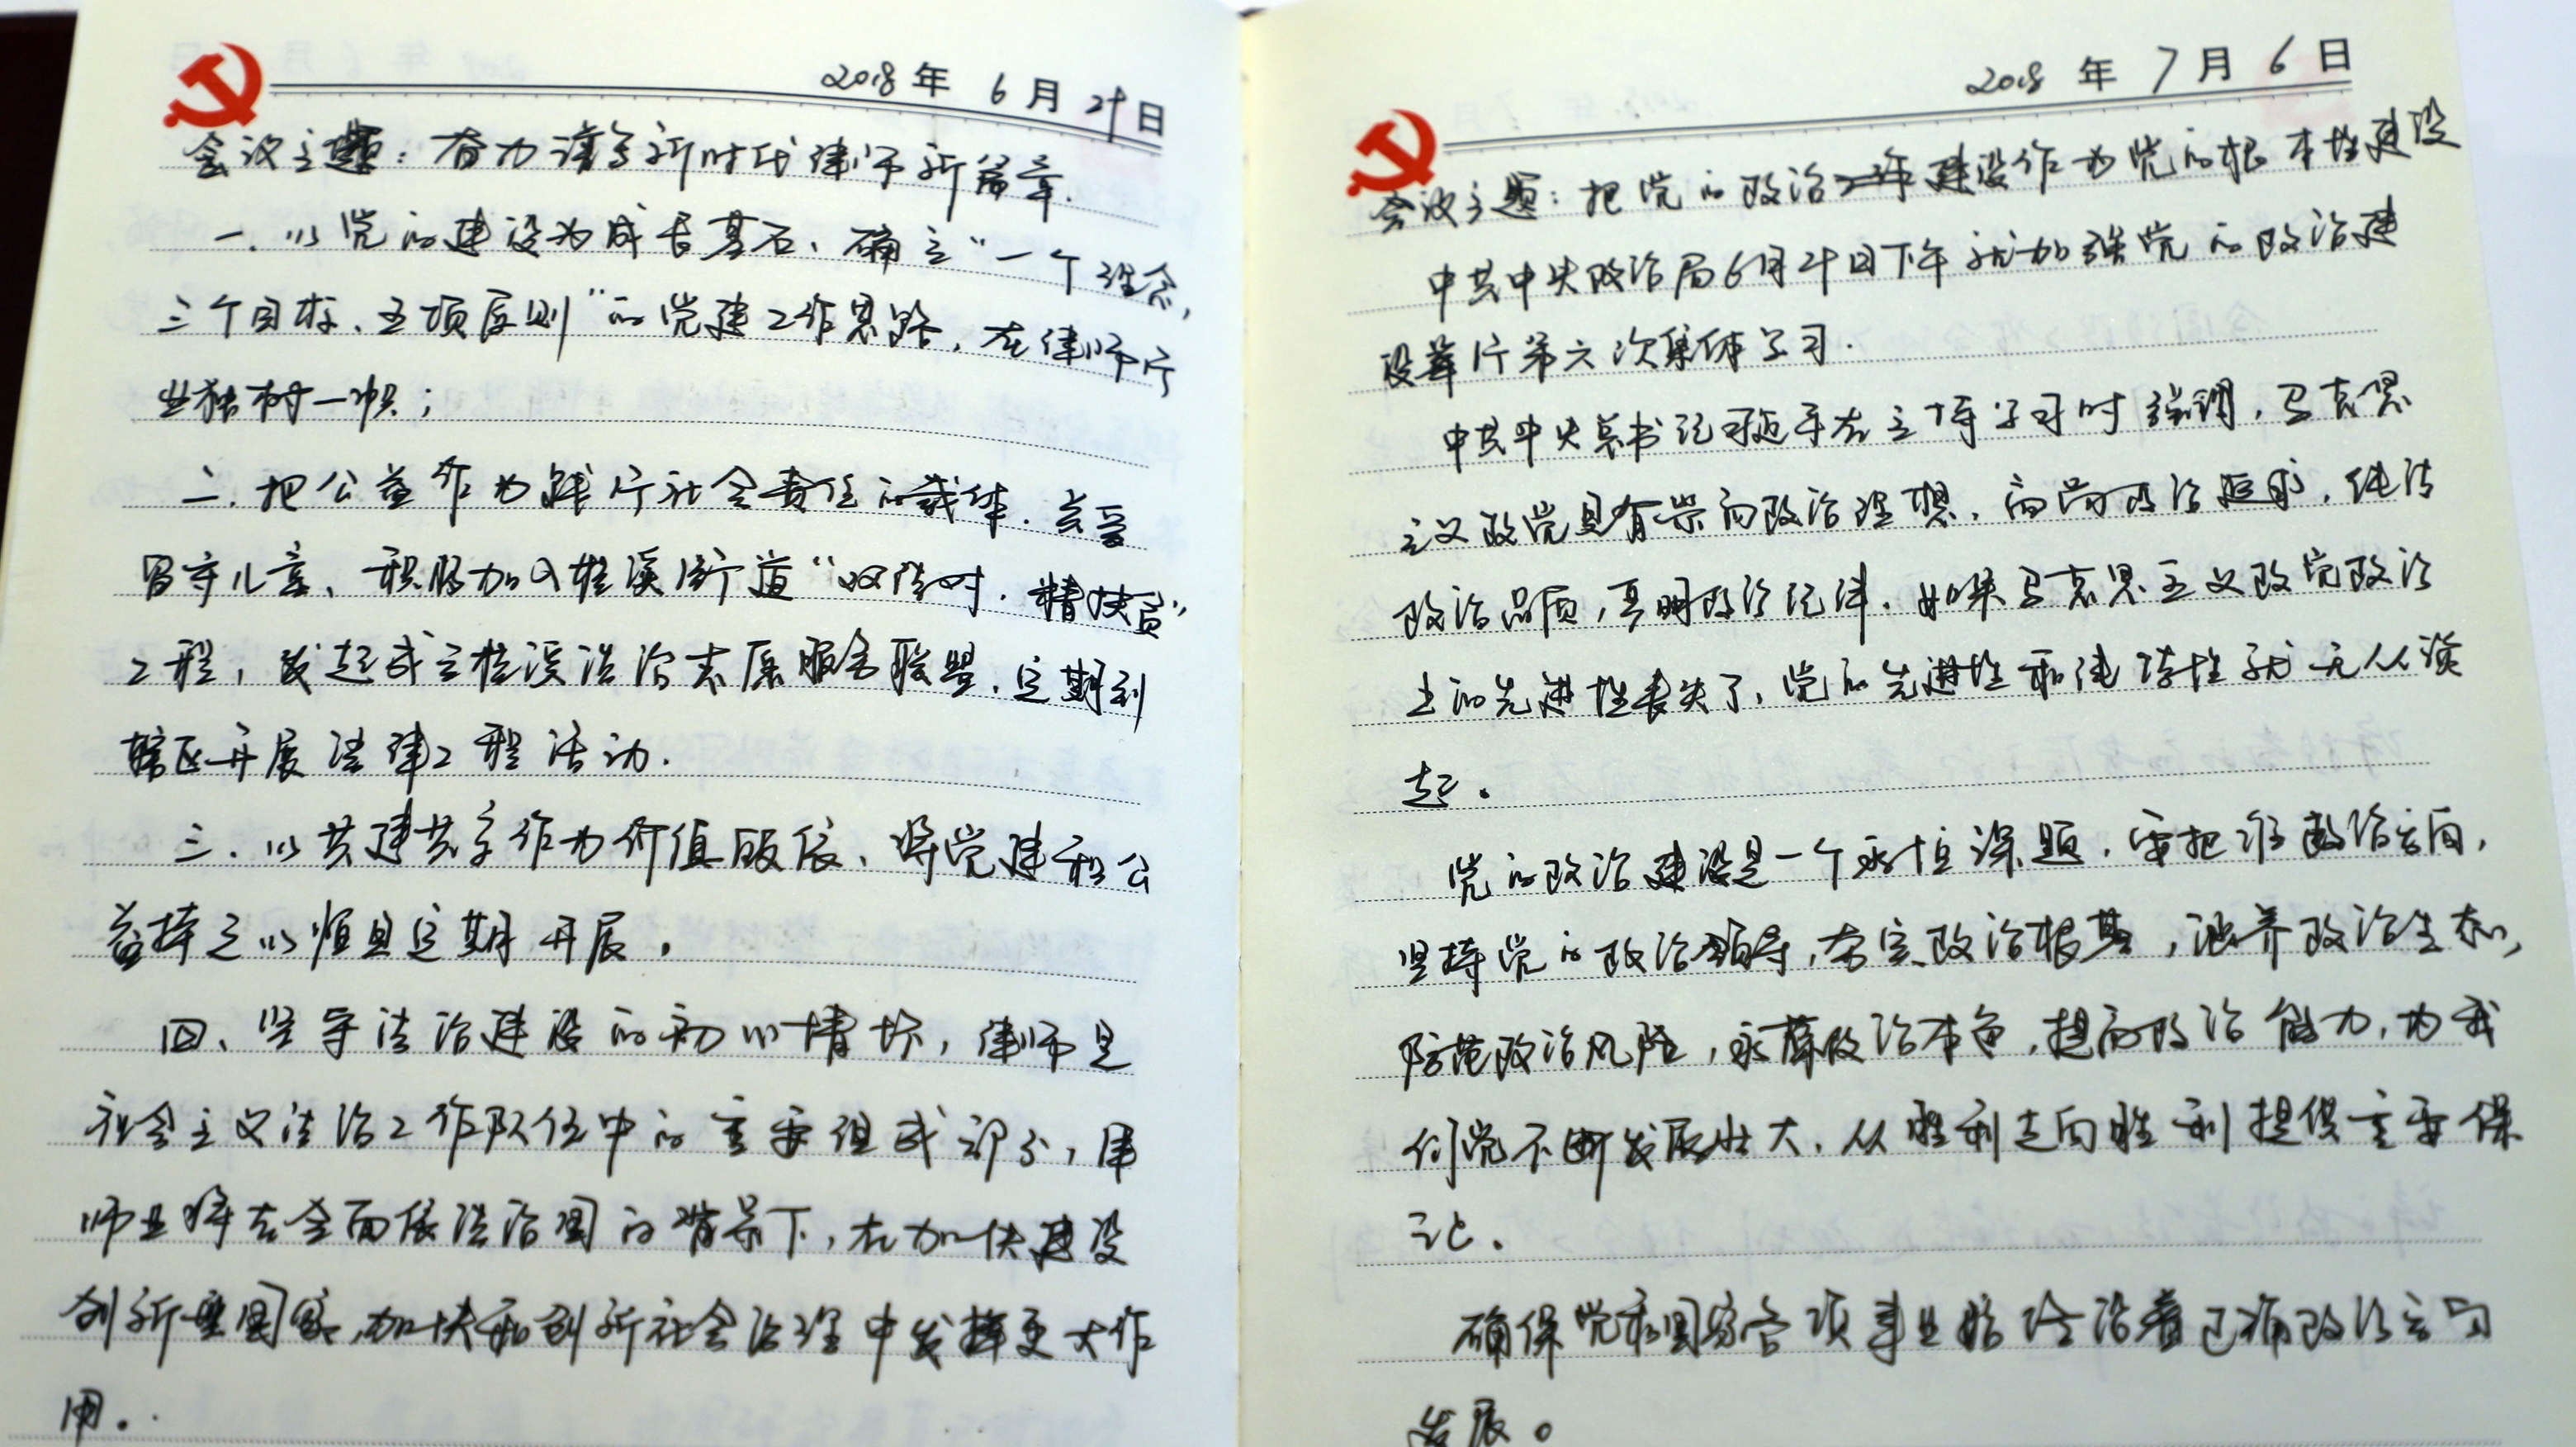 2018年 6月 29日
会议主题：奋力谱写新时代律师新篇章.
一.以党的建设为成长基石、确立“一个理念,
三个目标、五项原则”的党建工作思路，在律师行
业独树一帜；
二.把公益作为践行社会责任的载体.关爱
留守儿童、积极加入桂溪街道“双结对.精扶贫”
工程，发起成立桂溪法治志愿服务联盟.定期到
辖区开展法律工程活动.
三.以共建共享作为价值皈依、将党建和公
益持之以恒且定期开展.
四、坚守法治建设的初心情怀，律师是
社会主义法治工作队伍中的重要组成部分，律
师业将在全面依法治国的背景下，在加快建设
创新型国家,加快和创新社会治理中发挥更大作
用。
2018 年 7月 6日
会议主题：把党的政治建设作为党的根本性建设
中共中央政治局6月29日下午就加强党的政治建
设举行第六次集体学习.
中共中央总书记习近平在主持学习时强调，马克思
主义政党具有崇高政治理想，高尚政治追求，纯洁
政治品质，严明政治纪律.如果马克思主义政党政治
上的先进性丧失了，党的先进性和纯洁性就无从谈
起.
党的政治建设是一个永恒课题.要把准政治方向，
坚持党的政治领导,夯实政治根基，涵养政治生态，
防范政治风险，永葆政治本色，提高政治能力，为我
们党不断发展壮大、从胜利走向胜利提供重要保
证.
确保党和国家各项事业始终沿着正确政治方向
发展。